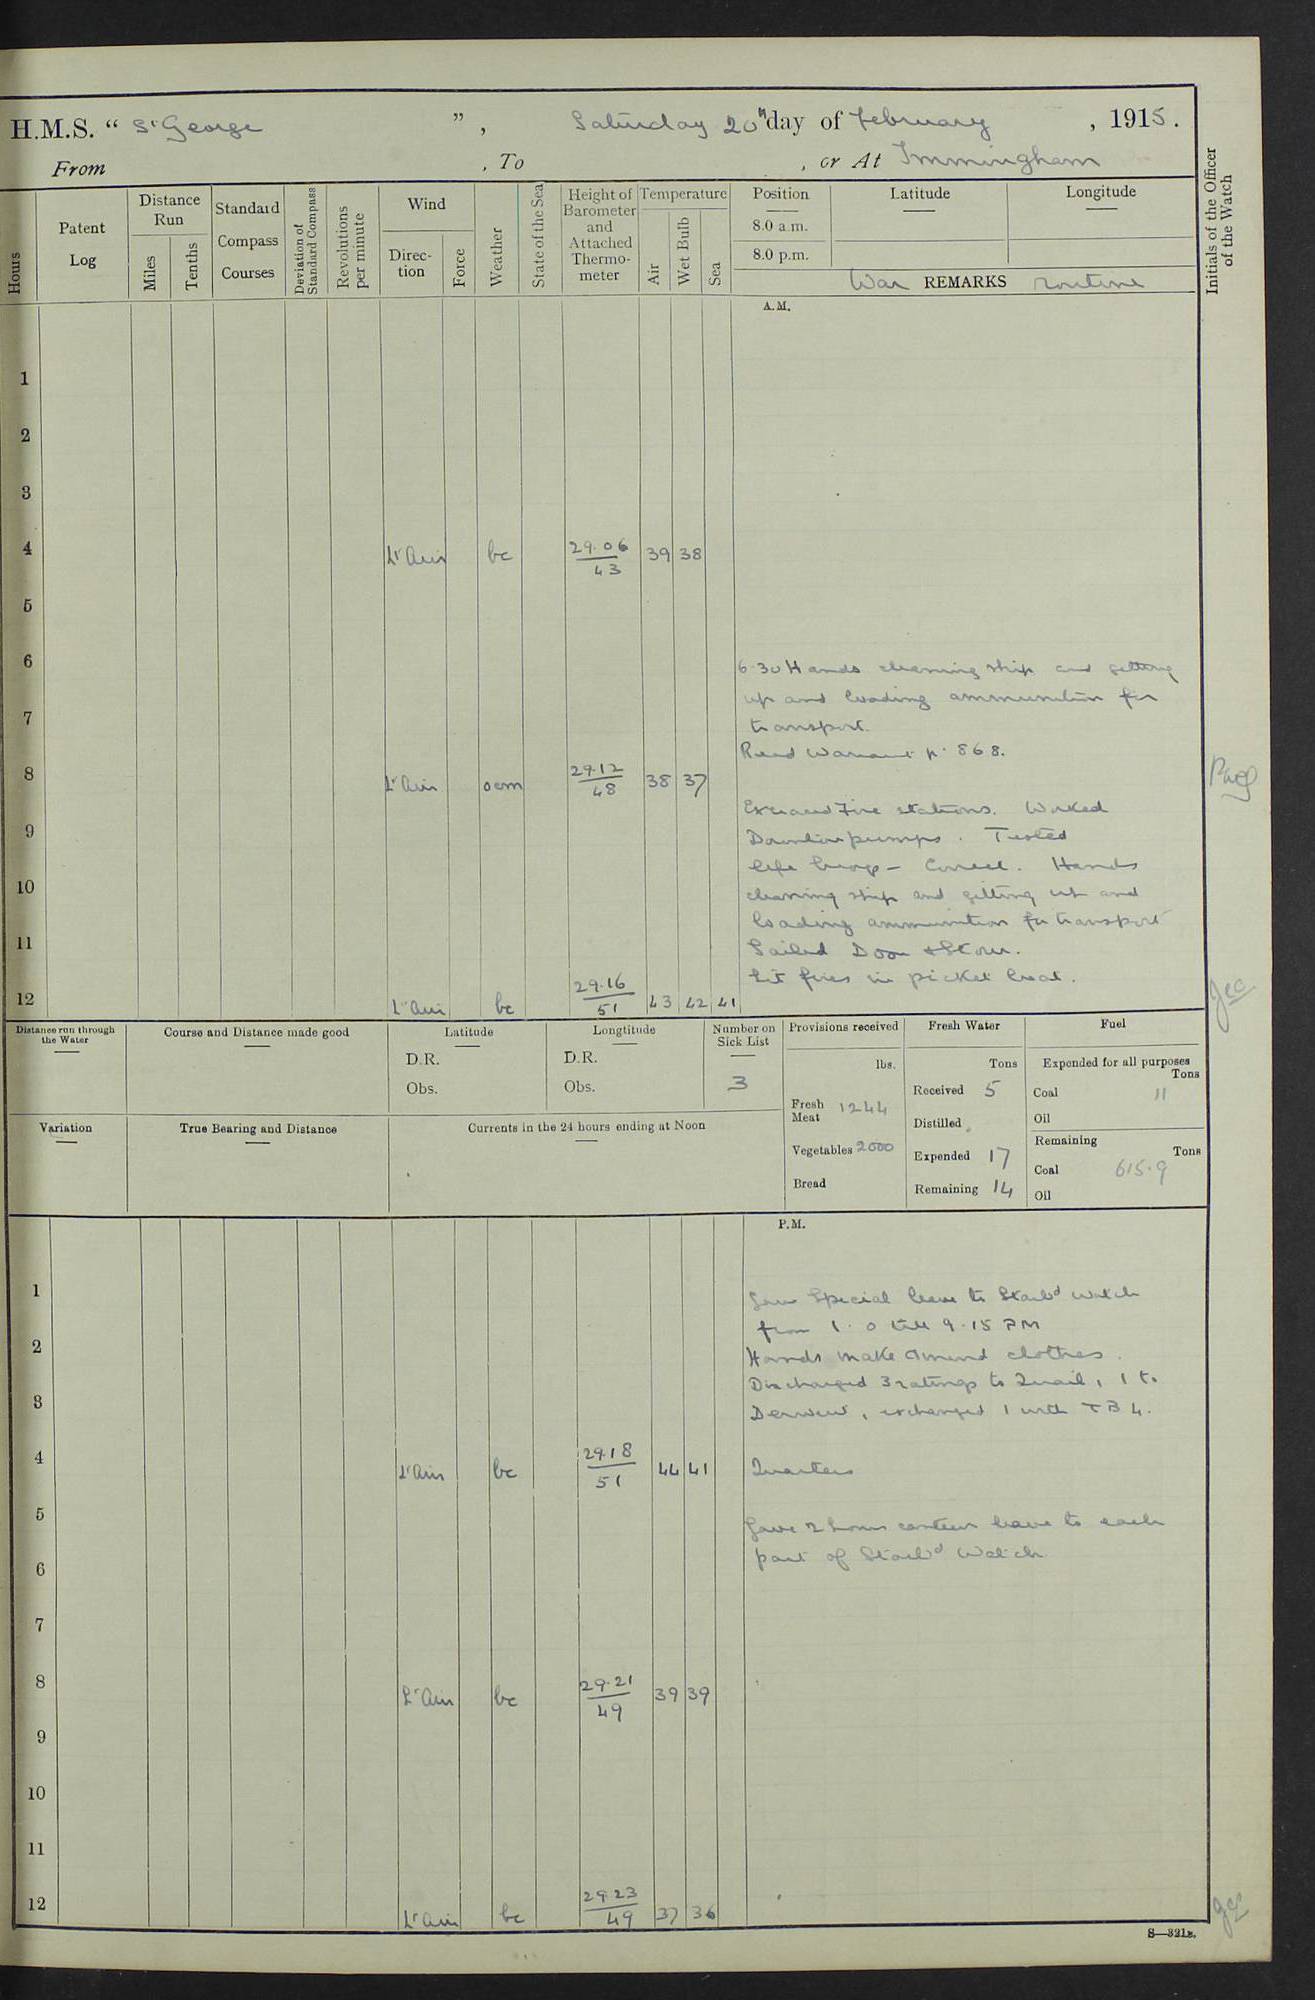 H.M.S. “ St George ” , Saturday 20th day of February , 1915.
From , To , or At Immingham
Hours
Patent Log
Distance Run
Miles
Tenths
Standard Compass Courses
Deviation of Standard Compass
Revolutions per minute
Wind
Direction
Force
Weather
State of the Sea
Height of Barometer and Attached Thermometer
Temperature
Air
Wet Bulb
Sea
Position
8.0 a.m.
8.0 p.m.
Latitude
Longitude
War REMARKS routine
Initials of the Officer of the Watch
A.M.
1
2
3
4 Lt Airs bc 29.06 39 38
43
5
6
6.30 Hands cleaning ship and getting
up and loading ammunition for
7
transport.
Read Warrant No 868.
8 Lt Airs ocm 29.12 38 37
48
Exercised Fire stations. Worked
9
Downton pumps. Tested
life buoys – Correct. Hands
10
cleaning ship and getting up and
loading ammunition for transport
11
Sailed Doon & Stour.
Lit fires in picket boat.
12 Lt Airs bc 29.16 43 42 41
51
Distance run through the Water
Course and Distance made good
Latitude
D.R.
Obs.
Longtitude
D.R.
Obs.
Number on Sick List
3
Provisions received
lbs.
Fresh Meat 1244
Vegetables 2000
Bread
Fresh Water
Tons
Received 5
Distilled
Expended 17
Remaining 14
Fuel
Expended for all purposes
Tons
Coal 11
Oil
Remaining
Tons
Coal 615.9
Oil
Variation
True Bearing and Distance
Currents in the 24 hours ending at Noon
P.M.
1
Gave Special leave to Starbd Watch
from 1.0 till 9.15 PM
2
Hands make & mend clothes.
Discharged 3 ratings to Quail, 1 to
3
Derwent, exchanged 1 with TB 4.
4 Lt Airs bc 29.18 44 41 Quarters
51
5
Gave 2 hours canteen leave to each
part of Starbd Watch
6
7
8 Lt Airs bc 29.21 39 39
49
9
10
11
12 Lt Airs bc 29.23 37 36
49
S—321B.